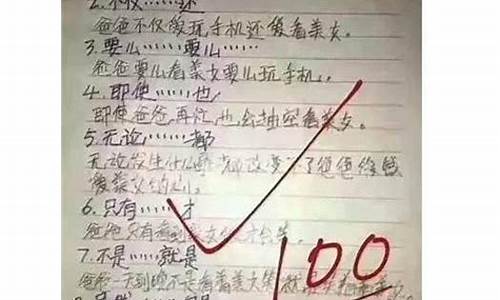 2.不仅……还
爸爸不仅爱玩手机还爱看美女。
3.要么……要么……
爸爸要么看美女要么玩手机。
4.即使……也
即使爸爸再忙也会抽空看美女。
5.无论……都
无论发生什么都改变不了爸爸
爱美女的
6.只有……才
爸爸只有看到美女才会笑。
7.不是……就是
爸爸一天到晚不是看着美女笑就是
100